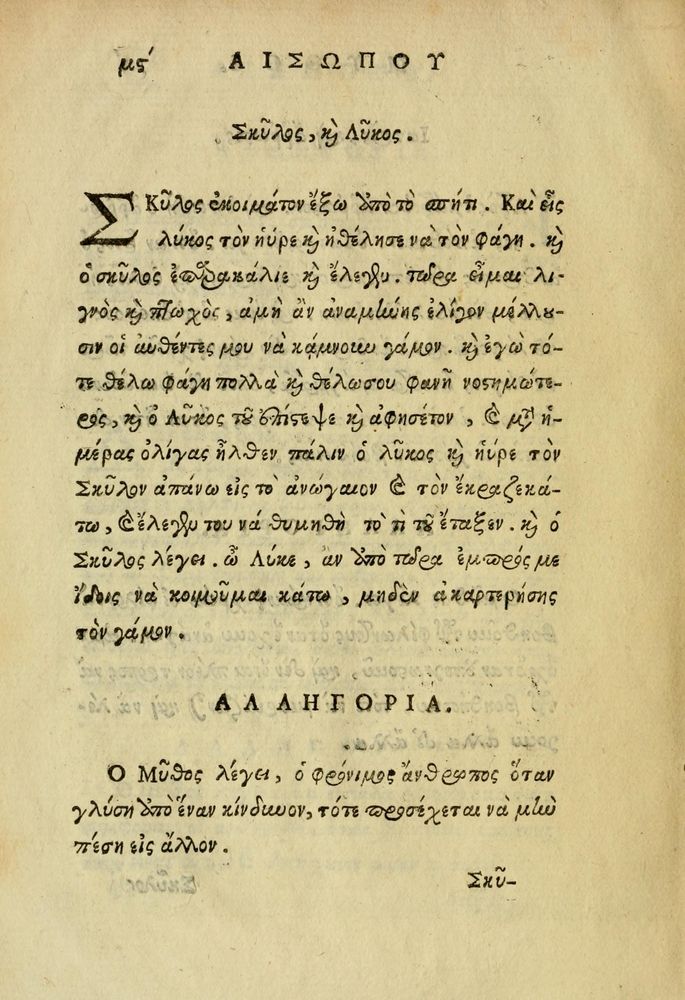 μϛʹ ΑΙΣΩΠΟΥ
Σκῦλος, καὶ Λῦκος.
ΣΚῦλος ἐκοιμάτον ἔξω ἀπὸ τὸ σπήτι. Καὶ εἷς
λύκος τὸν ηὗρε καὶ ἠθέλησε νὰ τὸν φάγῃ. καὶ
ὁ σκῦλος ἐπαρακάλιε καὶ ἔλεγεν. τώρα εἶμαι λι-
γνὸς καὶ πτωχὸς, ἀμὴ ἂν ἀναμένῃς ὀλίγον μέλλου-
σιν οἱ ἀυθέντες μου νὰ κάμνουν γάμον. καὶ ἐγὼ τό-
τε θέλω φάγῃ πολλὰ καὶ θέλω σου φανῆ νοστημώτε-
ρος, καὶ ὁ Λῦκος τοῦ ἐπίστεψε καὶ αφησέτον, καὶ μετὰ ἡ-
μέρας ὀλίγας ἦλθεν πάλιν ὁ λῦκος καὶ ηὗρε τὸν
Σκῦλον απάνω εἰς τὸ ἀνώγαιον καὶ τὸν ἔκραζε κά-
τω, καὶ ἔλεγεν του νά θυμηθῆ τὸ τὶ τοῦ ἔταξεν. καὶ ὁ
Σκῦλος λέγει. ὦ Λύκε, ἀν ἀπὸ τώρα ἐμπρός με
ἴδῃς νὰ κοιμοῦμαι κάτω, μηδὲν ἀκαρτερήσῃς
τὸν γάμον.
ΑΛΛΗΓΟΡΙΑ.
Ο Μῦθος λέγει, ὁ φρόνιμος ἄνθρωπος ὅταν
γλύσῃ ἀπὸ ἕναν κίνδυνον, τότε προσέχεται νὰ μὴν
πέσῃ εἰς ἄλλον.
Σκῦ-